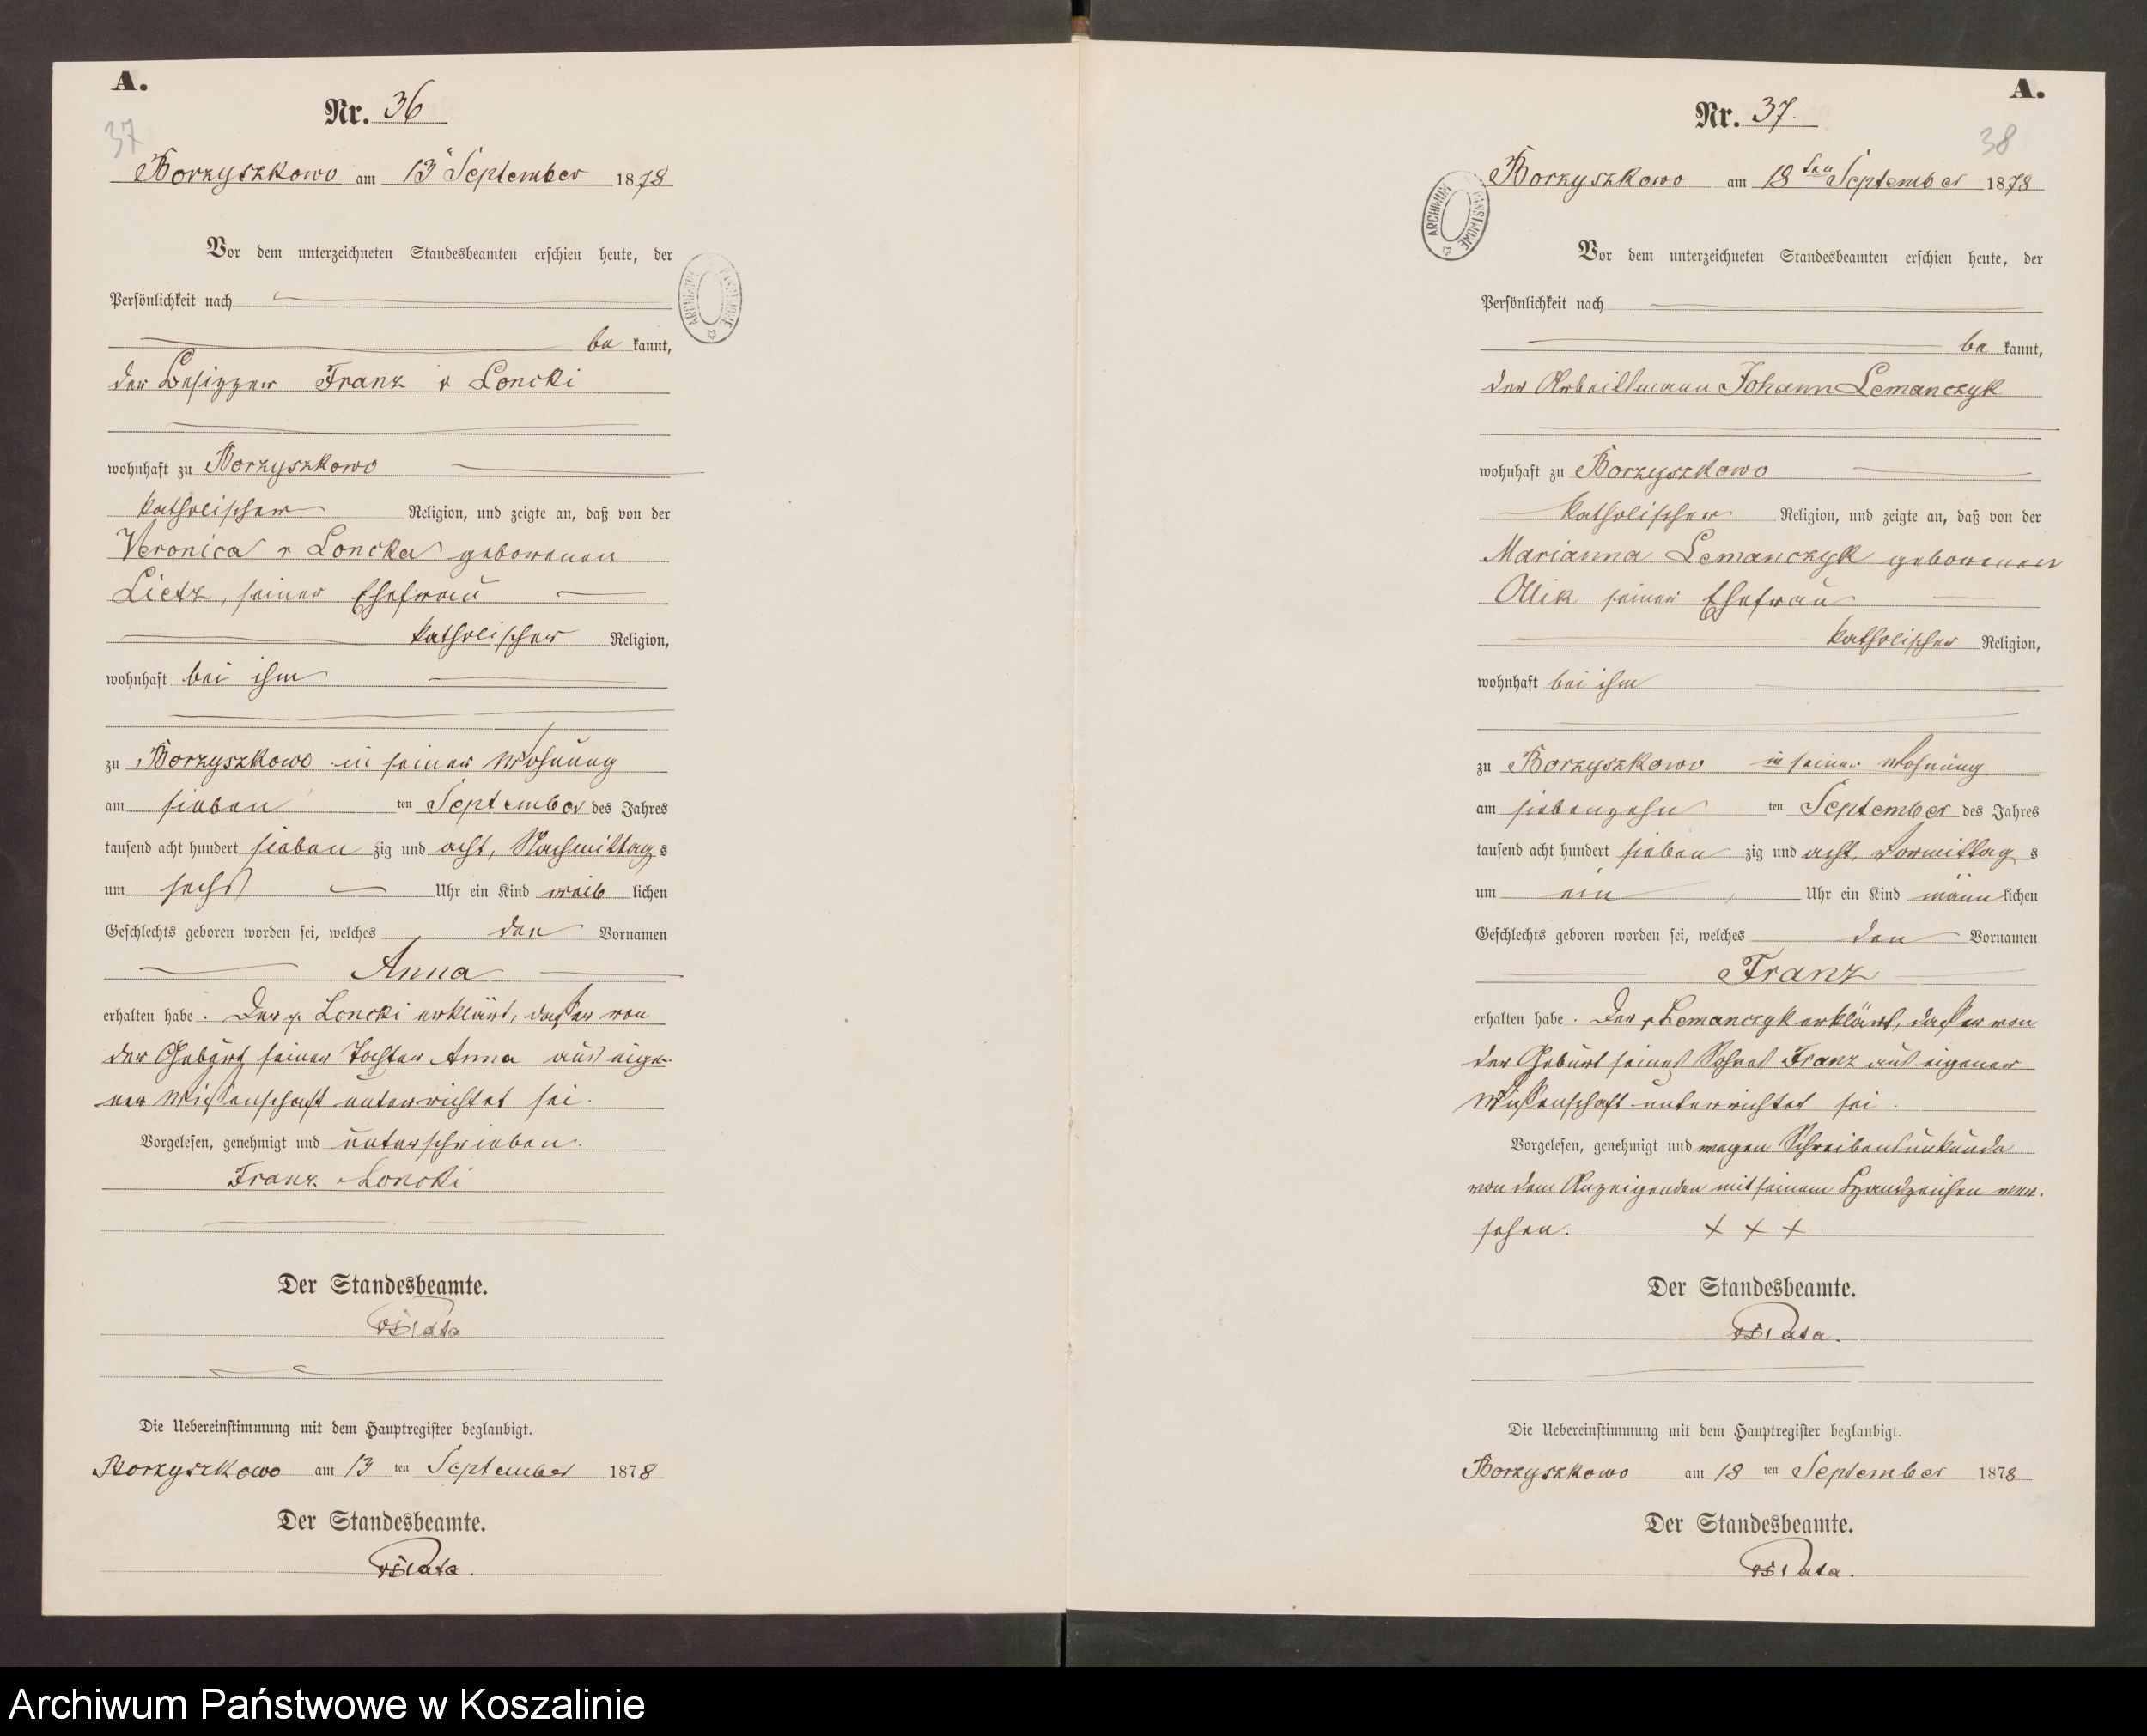 A.
Nr. 36
37
Borzyszkowo am 13 September 1878
Vor dem unterzeichneten Standesbeamten erschien heute, der
Persönlichkeit nach
be kannt,
der Besitzer Franz v Loncki
wohnhaft zu Borzyszkowo
katholischer Religion, und zeigte an, daß von der
Veronica v Loncka geborenen
Lietz, seiner Ehefrau
katholischer Religion,
wohnhaft bei ihm
zu Borzyszkowo in seiner Wohnung
am sieben ten September des Jahres
tausend acht hundert sieben zig und acht, Nachmittag s
um sechs Uhr ein Kind weib lichen
Geschlechts geboren worden sei, welches den Vornamen
Anna
erhalten habe. Der v. Loncki erklärt, daß er von
der Geburt seiner Tochter Anna aus eige-
ner Wissenschaft unterrichtet sei.
Vorgelesen, genehmigt und unterschrieben.
Franz Loncki
Der Standesbeamte.
Die Uebereinstimmung mit dem Hauptregister beglaubigt.
Borzyszkowo am 13 ten September 1878
Der Standesbeamte.
ARCHIWUM PAŃSTWOWE
A.
Nr. 37.
38
Borzyszkowo am 18 ten September 1878
Vor dem unterzeichneten Standesbeamten erschien heute, der
Persönlichkeit nach
be kannt,
der Arbeitsmann Johann Lemanczyk
wohnhaft zu Borzyszkowo
katholischer Religion, und zeigte an, daß von der
Marianna Lemanczyk geborenen
seiner Ehefrau
katholischer Religion,
wohnhaft bei ihm
zu Borzyszkowo in seiner Wohnung
am siebenzehn ten September des Jahres
tausend acht hundert sieben zig und acht, Vormittag s
um ein Uhr ein Kind männ lichen
Geschlechts geboren worden sei, welches den Vornamen
Franz
erhalten habe. Der Lemanczyk erklärt, daß er von
der Geburt seines Sohnes Franz aus eigener
Wissenschaft unterrichtet sei.
Vorgelesen, genehmigt und wegen Schreibensunkunde
von dem Anzeigenden mit seinem Handzeichen ver-
sehen. + + +
Der Standesbeamte.
Die Uebereinstimmung mit dem Hauptregister beglaubigt.
Borzyszkowo am 18 ten September 1878
Der Standesbeamte.
ARCHIWUM PAŃSTWOWE
Archiwum Państwowe w Koszalinie